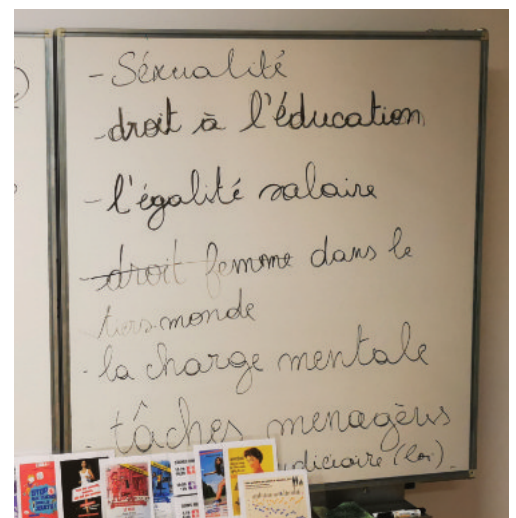 - Séxualité
- droit à l'éducation
- l'égalité salaire
- droit femme dans le
tiers-monde
- la charge mentale
- tâches menagères
(loi)